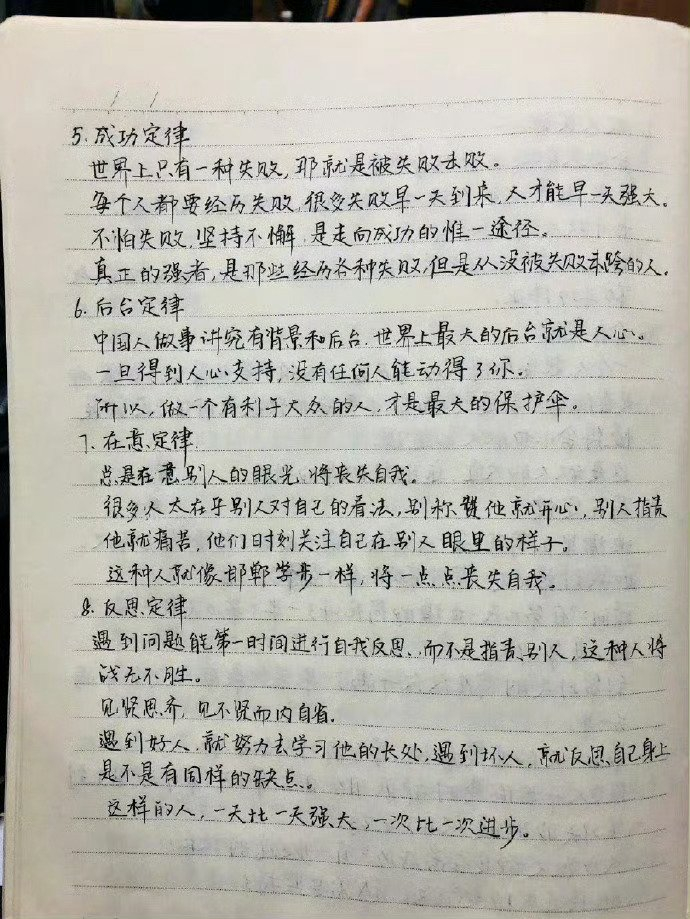 5. 成功定律
世界上只有一种失败，那就是被失败击败。
每个人都要经历失败，很多失败早一天到来，人才能早一天强大。
不怕失败，坚持不懈，是走向成功的惟一途径。
真正的强者，是那些经历各种失败，但是从没被失败击垮的人。
6. 后台定律
中国人做事讲究有背景和后台，世界上最大的后台就是人心。
一旦得到人心支持，没有任何人能动得了你。
所以，做一个有利于大众的人，才是最大的保护伞。
7. 在意定律
总是在意别人的眼光，将丧失自我。
很多人太在乎别人对自己的看法，别称赞他就开心，别人指责
他就痛苦，他们时刻关注自己在别人眼里的样子。
这种人就像邯郸学步一样，将一点点丧失自我。
8. 反思定律
遇到问题能第一时间进行自我反思，而不是指责别人，这种人将
战无不胜。
见贤思齐，见不贤而内自省。
遇到好人，就努力去学习他的长处，遇到坏人，就反思自己身上
是不是有同样的缺点。
这样的人，一天比一天强大，一次比一次进步。